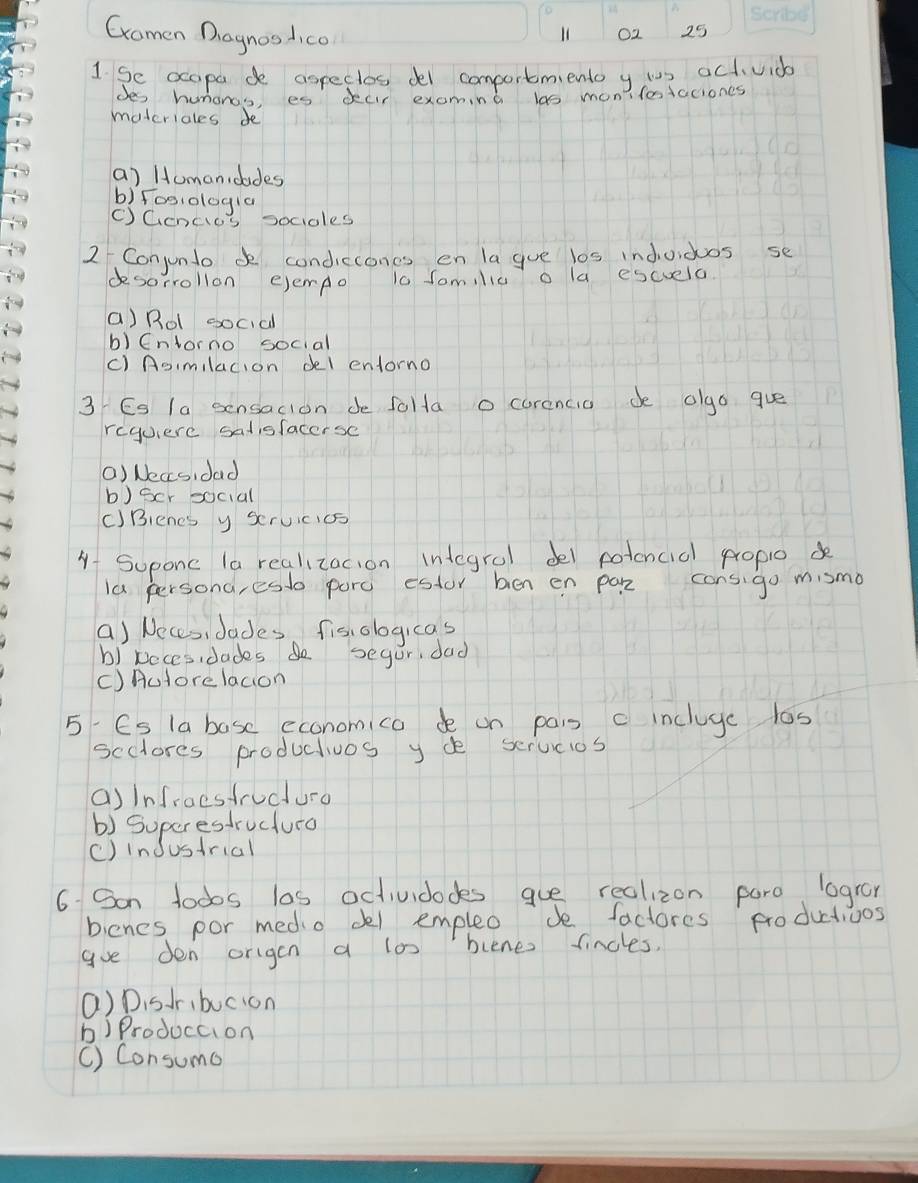 Scribe
Examen Diagnostico 11 02 25
1. Se ocupa de aspectos del comportmiento y las activida
des humanas, es decir examina las manifestaciones
materiales de
a) Humanidades
b) Fosiologia
c) Ciencias sociales
2- Conjunto de condiccones en la que los individuos se
desarrollan ejempo la familia o la escuela
a) Rol social
b) Entorno social
c) Asimilacion del entorno
3- Es la sensacion de falta o carencia de algo que
requiere satisfacerse
a) Necesidad
b) Ser social
c) Bienes y servicios
4- Supone la realizacion integral del potencial propio de
la persona, esto para estar bien en paz consigo mismo
a) Necesidades fisiologicas
b) Necesidades de seguridad
c) Autorelacion
5- Es la base economica de un pais e incluye los
sectores productivos y de servicios
a) Infraestructura
b) Superestructura
c) industrial
6- Son todos las actividades que realizan para lograr
bienes por medio del empleo de factores productivos
que den origen a los bienes finales.
a) Distribucion
b) Produccion
c) Consumo